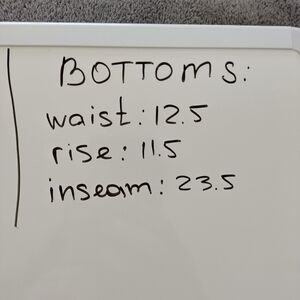 BOTTOMS:
waist: 12.5
rise: 11.5
inseam: 23.5